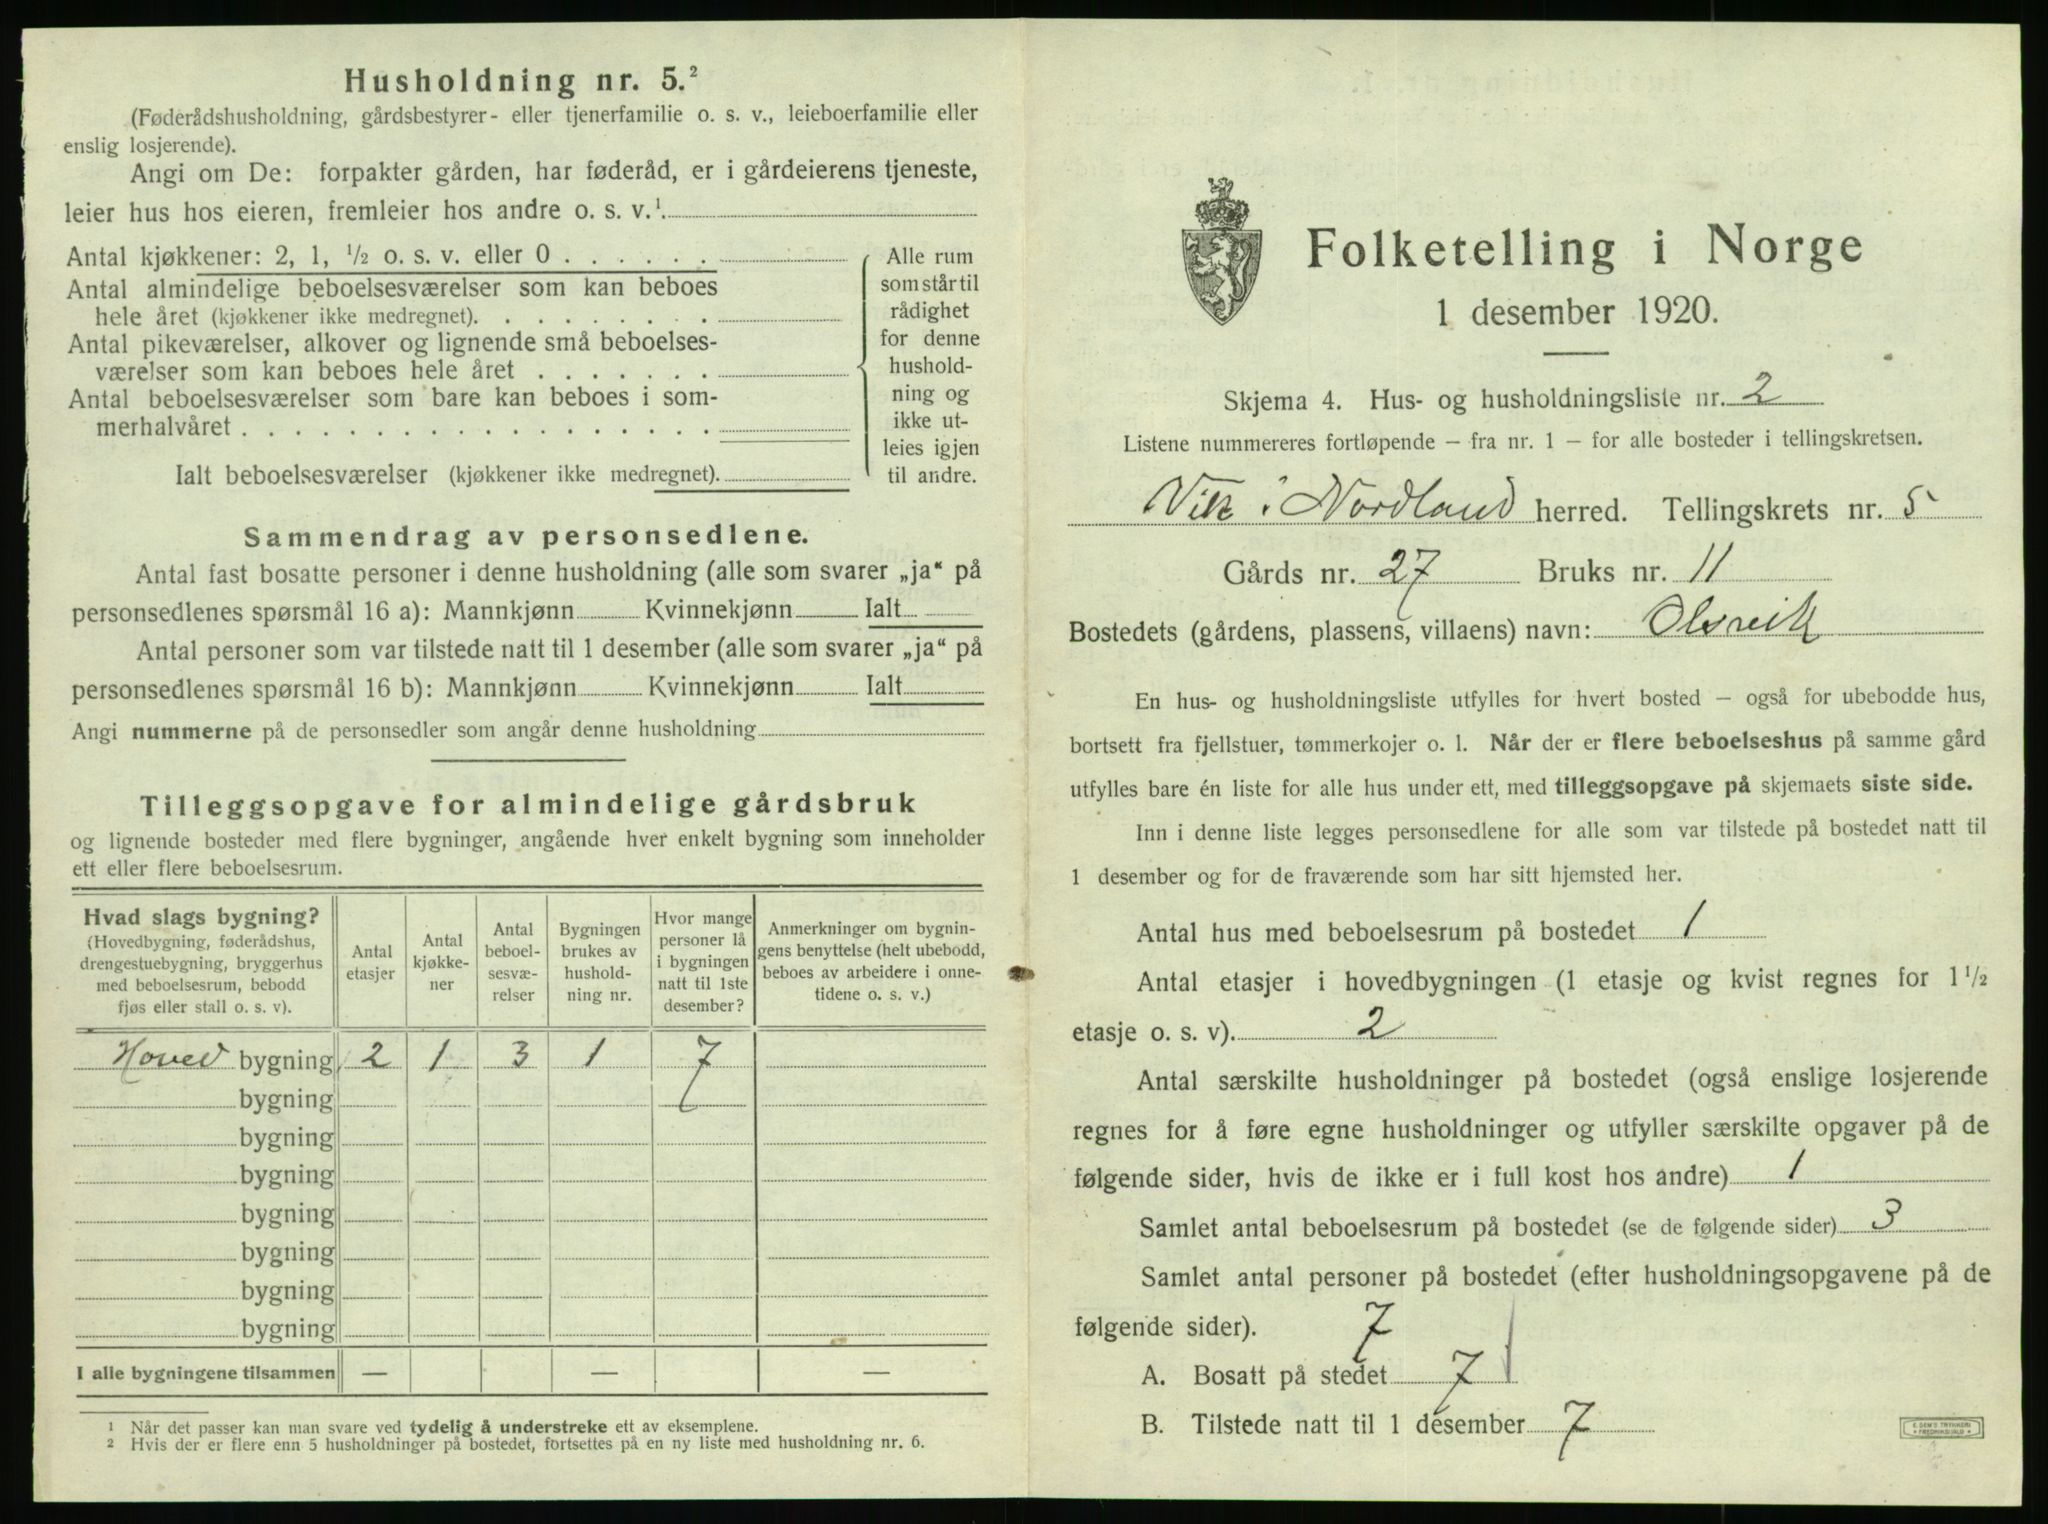 Husholdning nr. 5.²
(Føderådshusholdning, gårdsbestyrer- eller tjenerfamilie o. s. v., leieboerfamilie eller
enslig losjerende).
Angi om De: forpakter gården, har føderåd, er i gårdeierens tjeneste,
leier hus hos eieren, fremleier hos andre o. s. v.¹
Antal kjøkkener: 2, 1, ½ o. s. v. eller 0 . . . . . .
Antal almindelige beboelsesværelser som kan beboes
hele året (kjøkkener ikke medregnet). . . . . . . .
Antal pikeværelser, alkover og lignende små beboelses-
værelser som kan beboes hele året . . . . . . .
Antal beboelsesværelser som bare kan beboes i som-
merhalvåret . . . . . . . . . . . . . . . . . .
Ialt beboelsesværelser (kjøkkener ikke medregnet).
Alle rum
som står til
rådighet
for denne
hushold-
ning og
ikke ut-
leies igjen
til andre.
Sammendrag av personsedlene.
Antal fast bosatte personer i denne husholdning (alle som svarer „ja“ på
personsedlenes spørsmål 16 a): Mannkjønn Kvinnekjønn Ialt
Antal personer som var tilstede natt til 1 desember (alle som svarer „ja“ på
personsedlenes spørsmål 16 b): Mannkjønn Kvinnekjønn Ialt
Angi nummerne på de personsedler som angår denne husholdning
Tilleggsopgave for almindelige gårdsbruk
og lignende bosteder med flere bygninger, angående hver enkelt bygning som inneholder
ett eller flere beboelsesrum.
Hvad slags bygning?
(Hovedbygning, føderådshus,
drengestuebygning, bryggerhus
med beboelsesrum, bebodd
fjøs eller stall o. s. v).
Antal
etasjer
Antal
kjøkke-
ner
Antal
beboel-
sesvæ-
relser
Bygningen
brukes av
hushold-
ning nr.
Hvor mange
personer lå
i bygningen
natt til 1ste
desember?
Anmerkninger om bygnin-
gens benyttelse (helt ubebodd,
beboes av arbeidere i onne-
tidene o. s. v.)
Hoved bygning 2 1 3 1 7
bygning
bygning
bygning
bygning
bygning
bygning
bygning
I alle bygningene tilsammen — — —
¹ Når det passer kan man svare ved tydelig å understreke ett av eksemplene.
² Hvis der er flere enn 5 husholdninger på bostedet, fortsettes på en ny liste med husholdning nr. 6.
Folketelling i Norge
1 desember 1920.
Skjema 4. Hus- og husholdningsliste nr. 2
Listene nummereres fortløpende – fra nr. 1 – for alle bosteder i tellingskretsen.
Vik i Nordland herred. Tellingskrets nr. 5
Gårds nr. 27 Bruks nr. 11
Bostedets (gårdens, plassens, villaens) navn: Olsvik
En hus- og husholdningsliste utfylles for hvert bosted – også for ubebodde hus,
bortsett fra fjellstuer, tømmerkojer o. l. Når der er flere beboelseshus på samme gård
utfylles bare én liste for alle hus under ett, med tilleggsopgave på skjemaets siste side.
Inn i denne liste legges personsedlene for alle som var tilstede på bostedet natt til
1 desember og for de fraværende som har sitt hjemsted her.
Antal hus med beboelsesrum på bostedet 1
Antal etasjer i hovedbygningen (1 etasje og kvist regnes for 1 ½
etasje o. s. v). 2
Antal særskilte husholdninger på bostedet (også enslige losjerende
regnes for å føre egne husholdninger og utfyller særskilte opgaver på de
følgende sider, hvis de ikke er i full kost hos andre) 1
Samlet antal beboelsesrum på bostedet (se de følgende sider) 3
Samlet antal personer på bostedet (efter husholdningsopgavene på de
følgende sider). 7
A. Bosatt på stedet 7
B. Tilstede natt til 1 desember 7
E. SEM'S TRYKKERI
FREDRIKSHALD